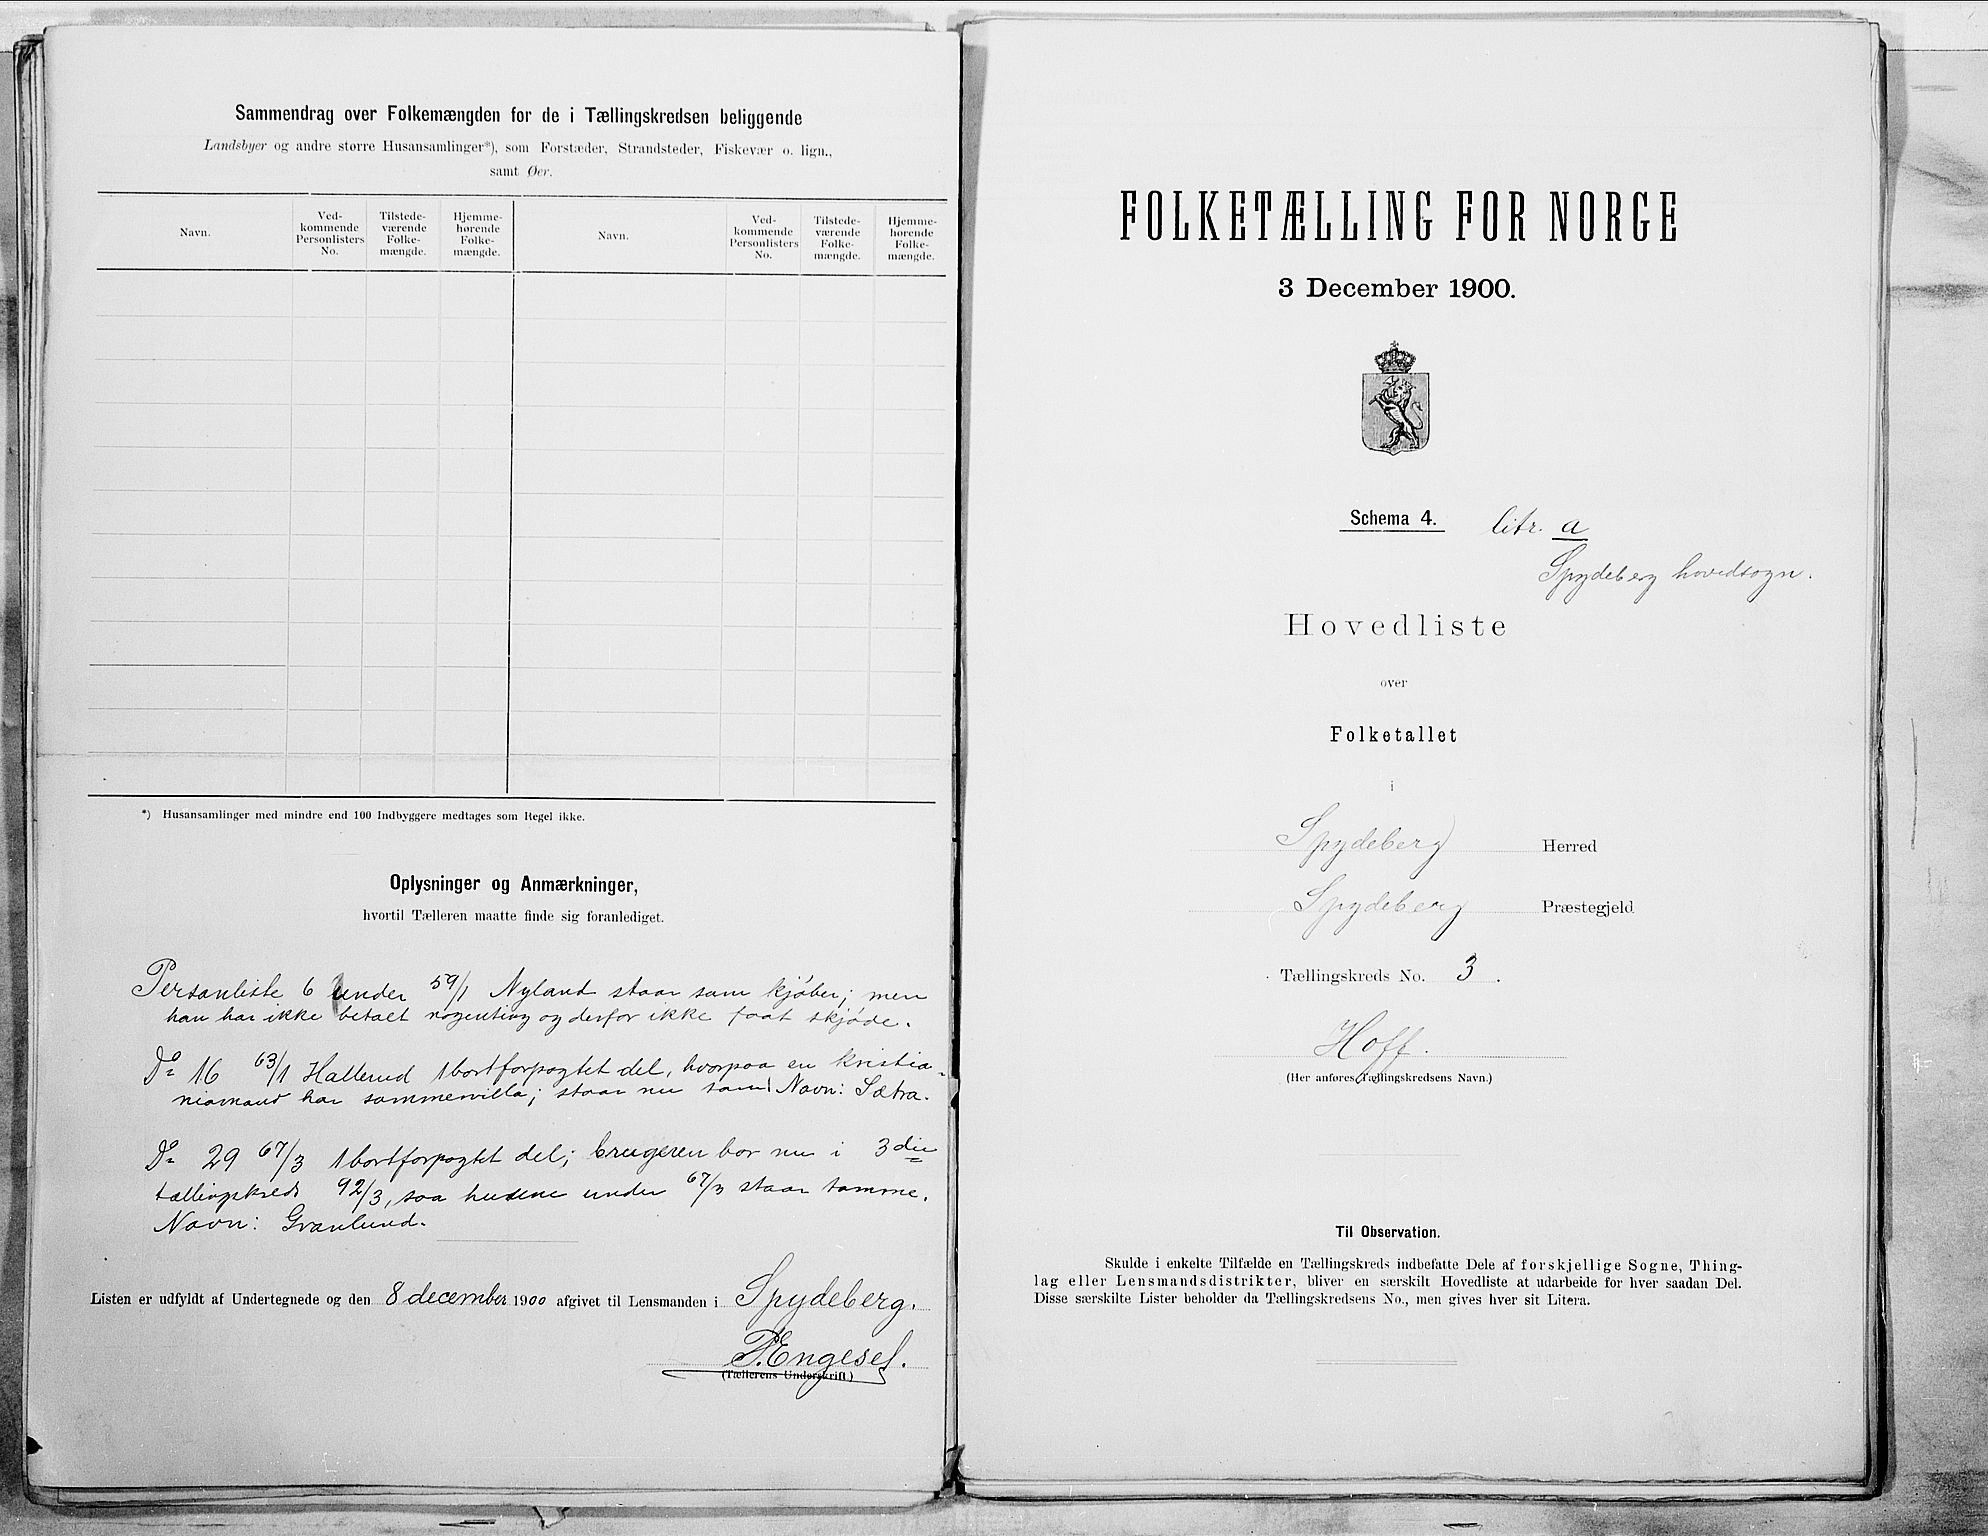 Sammendrag over Folkemængden for de i Tællingskredsen beliggende
Landsbyer og andre større Husansamlinger*), som Forstæder, Strandsteder, Fiskevær o. lign.,
samt Øer.
Navn.
Ved-
kommende
Personlisters
No.
Tilstede-
værende
Folke-
mængde.
Hjemme-
hørende
Folke-
mængde.
Navn.
Ved-
kommende
Personlisters
No.
Tilstede-
værende
Folke-
mængde.
Hjemme-
hørende
Folke-
mængde.
*) Husansamlinger med mindre end 100 Indbyggere medtages som Regel ikke.
Oplysninger og Anmærkninger,
hvortil Tælleren maatte finde sig foranlediget.
Personliste 6 under 59/1 Nyland staar som kjøber; men
han har ikke betalt nogenting og derfor ikke faat skjøde.
Do 16 63/1 Hallerud 1 bortforpagtet del, hvorpaa en kristia-
niamand har sommervilla; staar nu tom Navn: Sætra.
Do 29 67/3 1 bortforpagtet del; brugeren bor nu i 3die
tællingskreds 92/3, saa husene under 67/3 staar tomme.
Navn: Granlund.
Listen er udfyldt af Undertegnede og den 8 december 1900 afgivet til Lensmanden i Spydeberg.
P. Engeset.
(Tællerens Underskrift)
FOLKETÆLLING FOR NORGE
3 December 1900.
Schema 4. litr. a
Spydeberg hovedsogn.
Hovedliste
over
Folketallet
i
Spydeberg Herred
Spydeberg Præstegjeld
Tællingskreds No. 3.
Hoff.
(Her anføres Tællingskredsens Navn.)
Til Observation.
Skulde i enkelte Tilfælde en Tællingskreds indbefatte Dele af forskjellige Sogne, Thing-
lag eller Lensmandsdistrikter, bliver en særskilt Hovedliste at udarbeide for hver saadan Del.
Disse særskilte Lister beholder da Tællingskredsens No., men gives hver sit Litera.